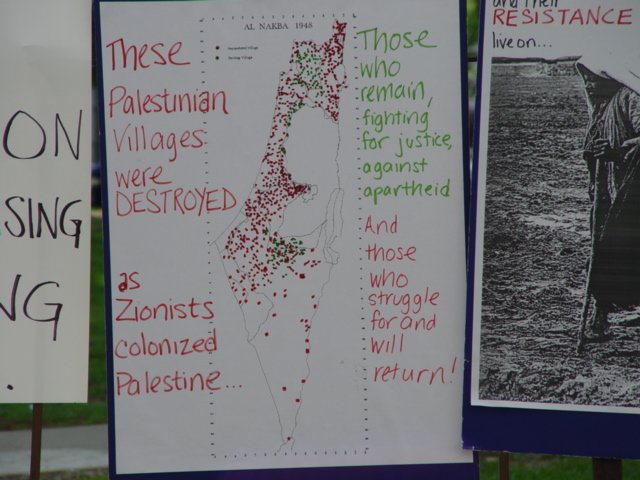 ON
SING
NG
.
AL NAKBA 1948
Depopulated Village
Existing Village
These
Palestinian
Villages
were
DESTROYED
as
Zionists
colonized
Palestine...
Those
who
remain,
fighting
for justice,
against
apartheid
And
those
who
struggle
for and
will
return!
and their
RESISTANCE
live on...